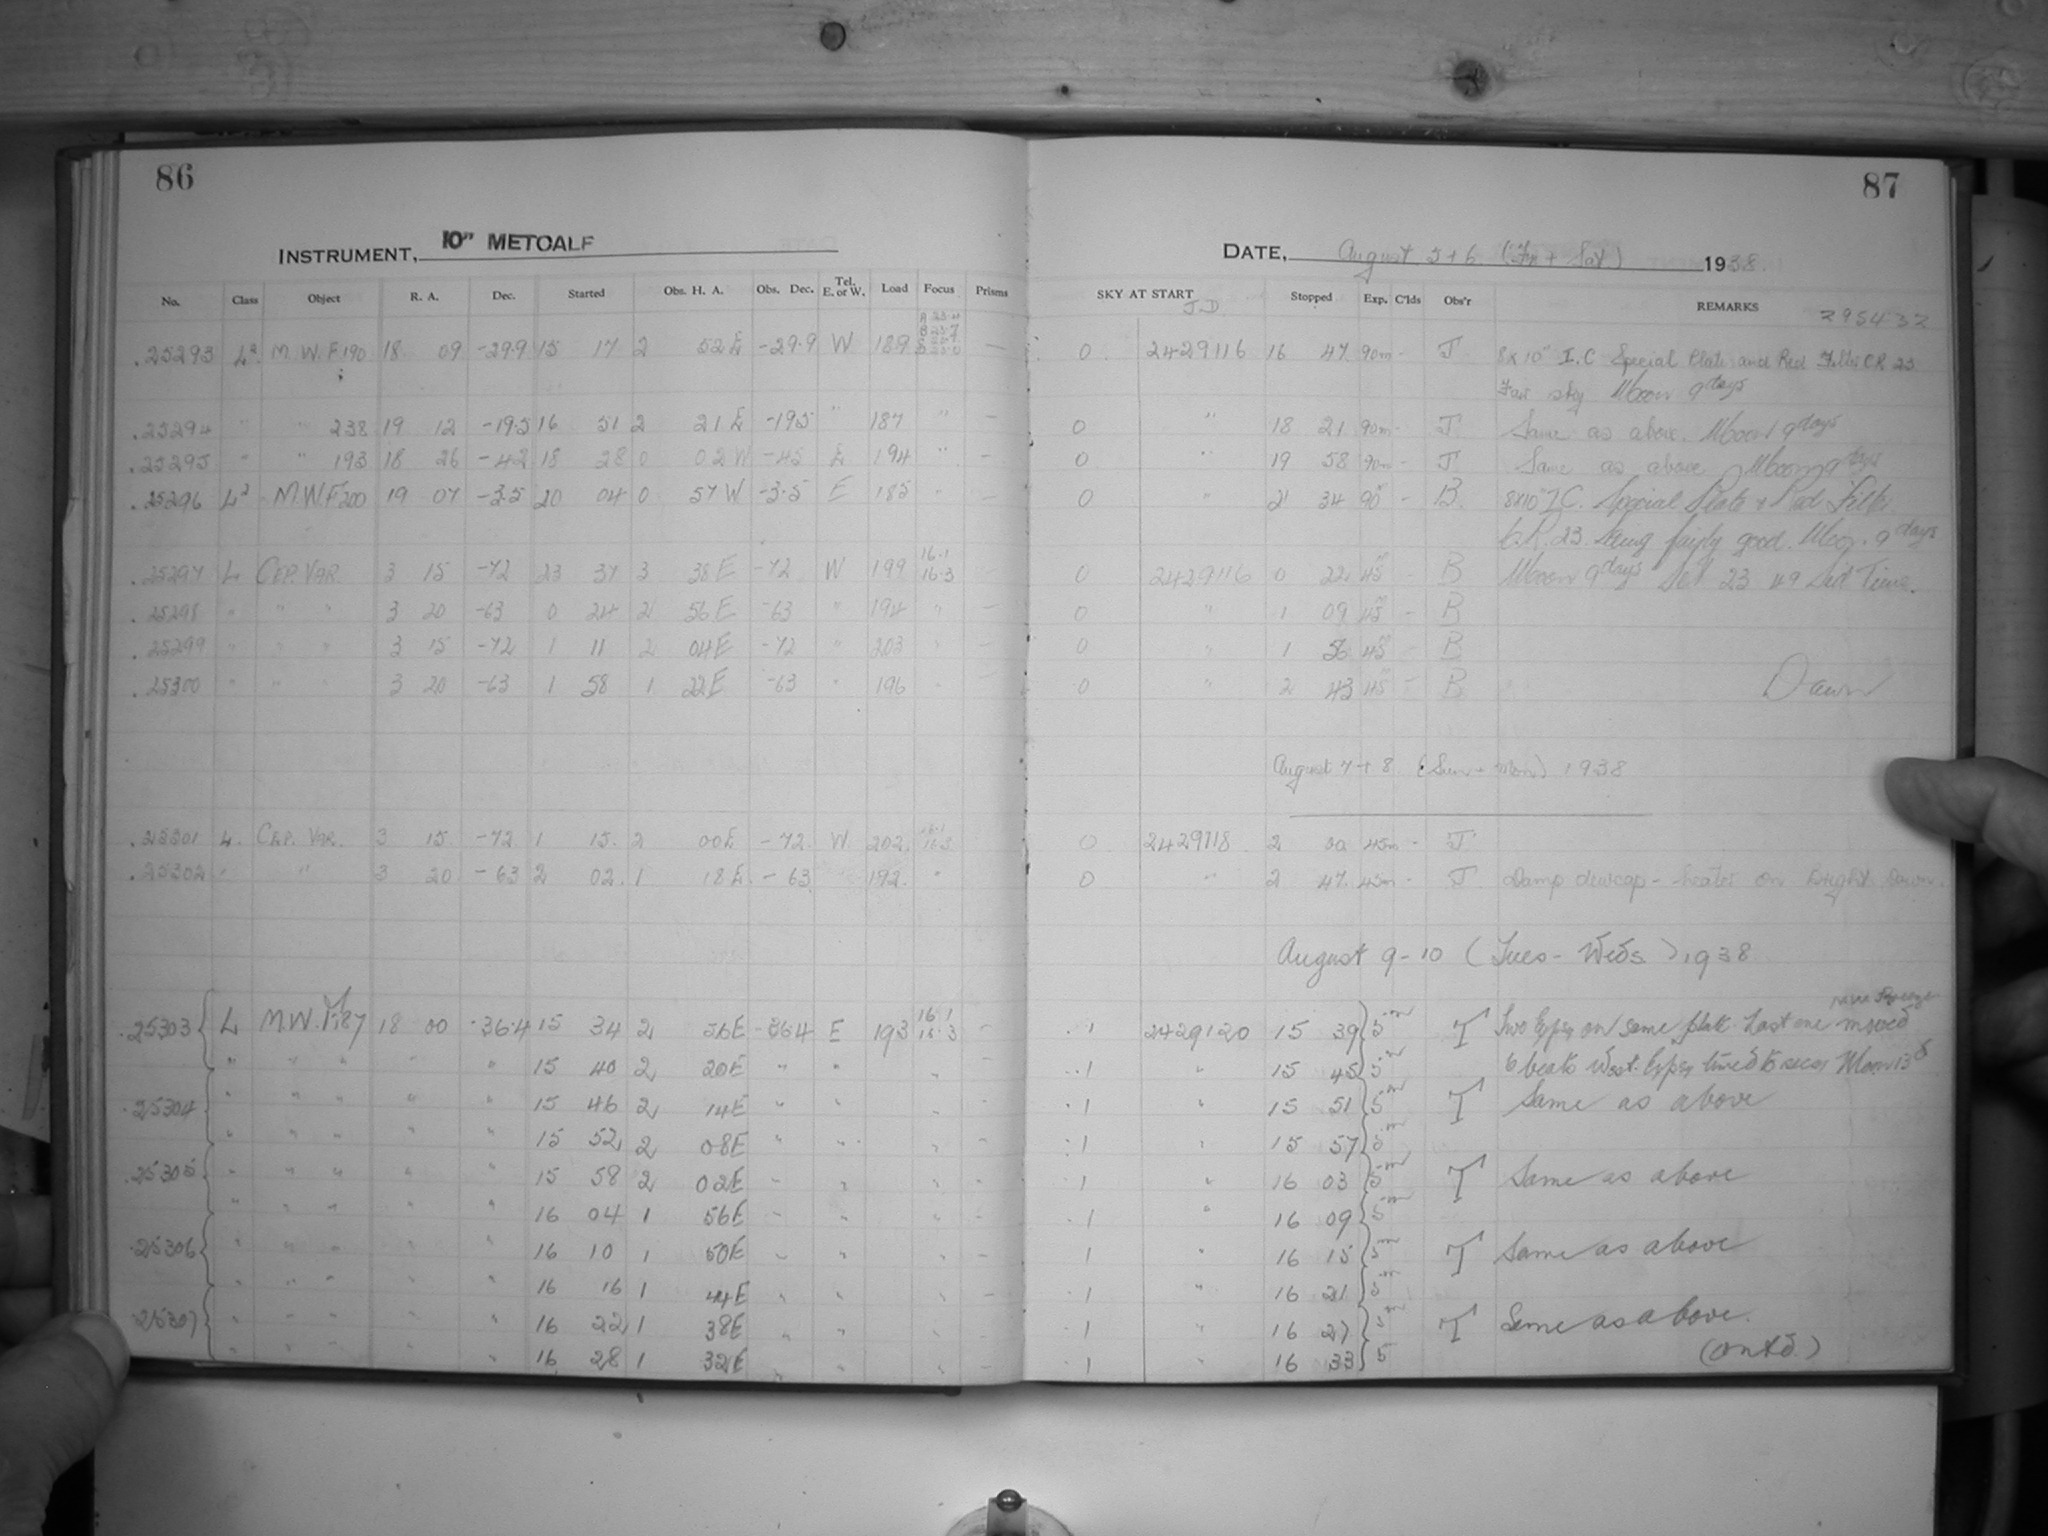 86
87
INSTRUMENT, 10" METCALF
DATE, August 5+6 (Fri + Sat) 1938.
No. Class Object R. A. Dec. Started Obs. H. A. Obs. Dec. Tel. E. or W. Load Focus Prisms SKY AT START J.D Stopped Exp. C'lds Obs'r REMARKS
295432
.25293 L2. M.W.F. 190 18 09 -29.9 15 17 2 52 E -29.9 W 189 — 0 2429116 16 47 90m - J 8x10" I.C Special Plate and Red Filter CR 23
Fair sky Moon 9days
.25294 " " 238 19 12 -19.5 16 51 2 21 E -19.5 " 187 " — 0 " 18 21 90m - J Same as above. Moon 9days
.25295 " " 193 18 26 -42 18 28 0 02 W -45 E 194 " — 0 " 19 58 90m - J Same as above Moon 9days
.25296 L2 M.W.F 200 19 07 -3.5 20 04 0 57 W. -3.5 E 185 " — 0 " 21 34 90m - B. 8x10" I.C. Special Plate + Red Filter
C.R. 23. Seeing fairly good. Moon. 9days
.25297 L CEP. VAR. 3 15 -72 23 37 3 38 E -72 W 199 16.1 16.3 0 2429116 0 22 45m - B Moon 9days Set 23 49 Sid Time.
.25298 " " " 3 20 -63 0 24 2 56 E -63 " 194 " — 0 " 1 09 45m - B
.25299 " " " 3 15 -72 1 11 2 04 E -72 " 203 " — 0 " 1 56 45m - B
.25300 " " " 3 20 -63 1 58 1 22 E -63 " 196 " — 0 " 2 43 45m - B Dawn
August 7+8 (Sun + Mon) 1938
.25301 L. CEP. VAR. 3 15 -72 1 15 2 00 E -72 W 202 16.1 16.3 0 2429118 2 00 45m - J
.25302 " " 3 20 -63 2 02 1 18 E -63 192 " 0 " 2 47 45m - J Damp dewcap - heater on Bright Dawn.
August 9-10 (Tues - Weds) 1938
.25303 L M.W.F. 187 18 00 -36.4 15 34 2 26 E -36.4 E 193 16.1 16.3 - 1 2429120 15 39 5m T Two Exps on same plate Last one moved
" " " " " " 15 40 2 20 E " " " 1 " 15 45 5m 6 beats West. Exps timed to secs Moon 13d
.25304 " " " " " 15 46 2 14 E " " " 1 " 15 51 5m T Same as above
" " " " " 15 52 2 08 E " " " - 1 " 15 57 5m
.25305 " " " " " 15 58 2 02 E " " " - 1 " 16 03 5m T Same as above
" " " " " 16 04 1 56 E " " " - 1 " 16 09 5m
.25306 " " " " " 16 10 1 50 E " " " - 1 " 16 15 5m T Same as above
" " " " " 16 16 1 44 E " " " - 1 " 16 21 5m
.25307 " " " " " 16 22 1 38 E " " " 1 " 16 27 5m T Same as above.
" " " " " 16 28 1 32 E " " " - 1 " 16 33 5 (Contd.)